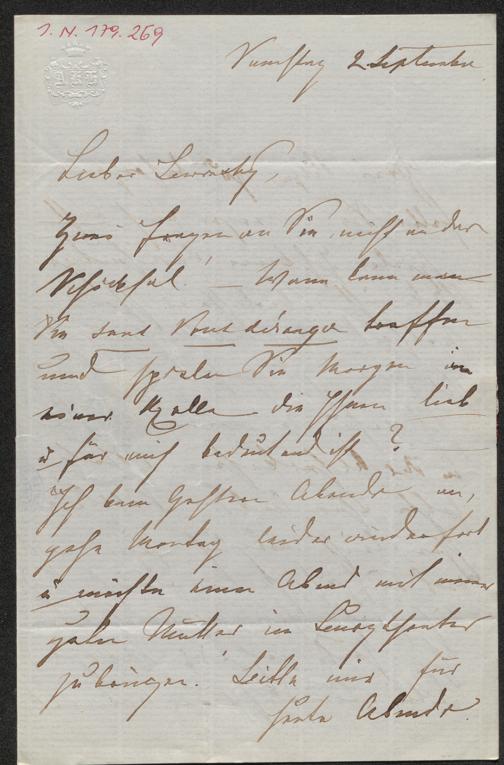 I. N. 179.269
Samstag 2 September
Lieber Lewinsky,
Zwei Fragen an Sie, nicht an das
Schicksal! — Wann kann man
Sie sans vous déranger treffen
und spielen Sie Morgen in
einer Rolle die Ihnen lieb
u für mich bedeutend ist?
Ich kam gestern Abends an,
gehe Montag leider wieder fort
u möchte einen Abend mit meiner
guten Mutter im Burgtheater
zubringen. Bleibt mir für
heute Abends.